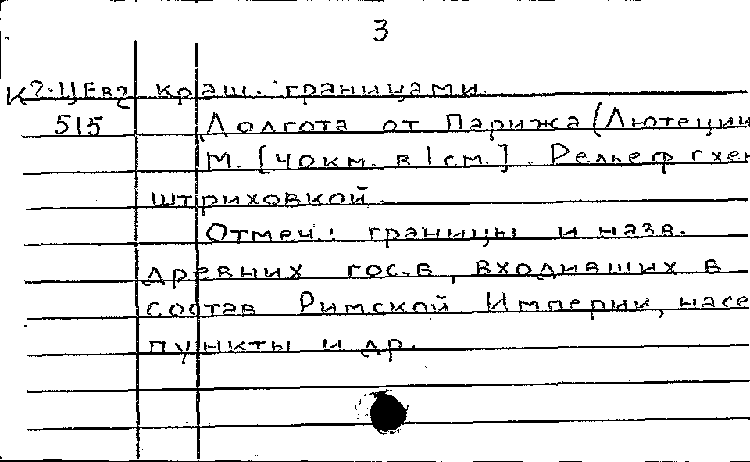 3
К2-ЦЕв2 краш. границами.
515 Долгота от Парижа (Лютеции
М. [40км. в 1см.]. Рельеф схем
штриховкой.
Отмеч.: границы и назв.
древних гос-в, входивших в
состав Римской Империи, насе
пункты и др.